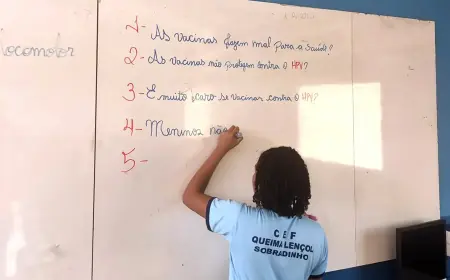 locomotor
1- As vacinas fazem mal para a saúde?
2- As vacinas não protegem contra o HPV?
3- É muito caro se vacinar contra o HPV?
4- Meninos não
5-
C E F
QUEIMA LENÇOL
SOBRADINHO